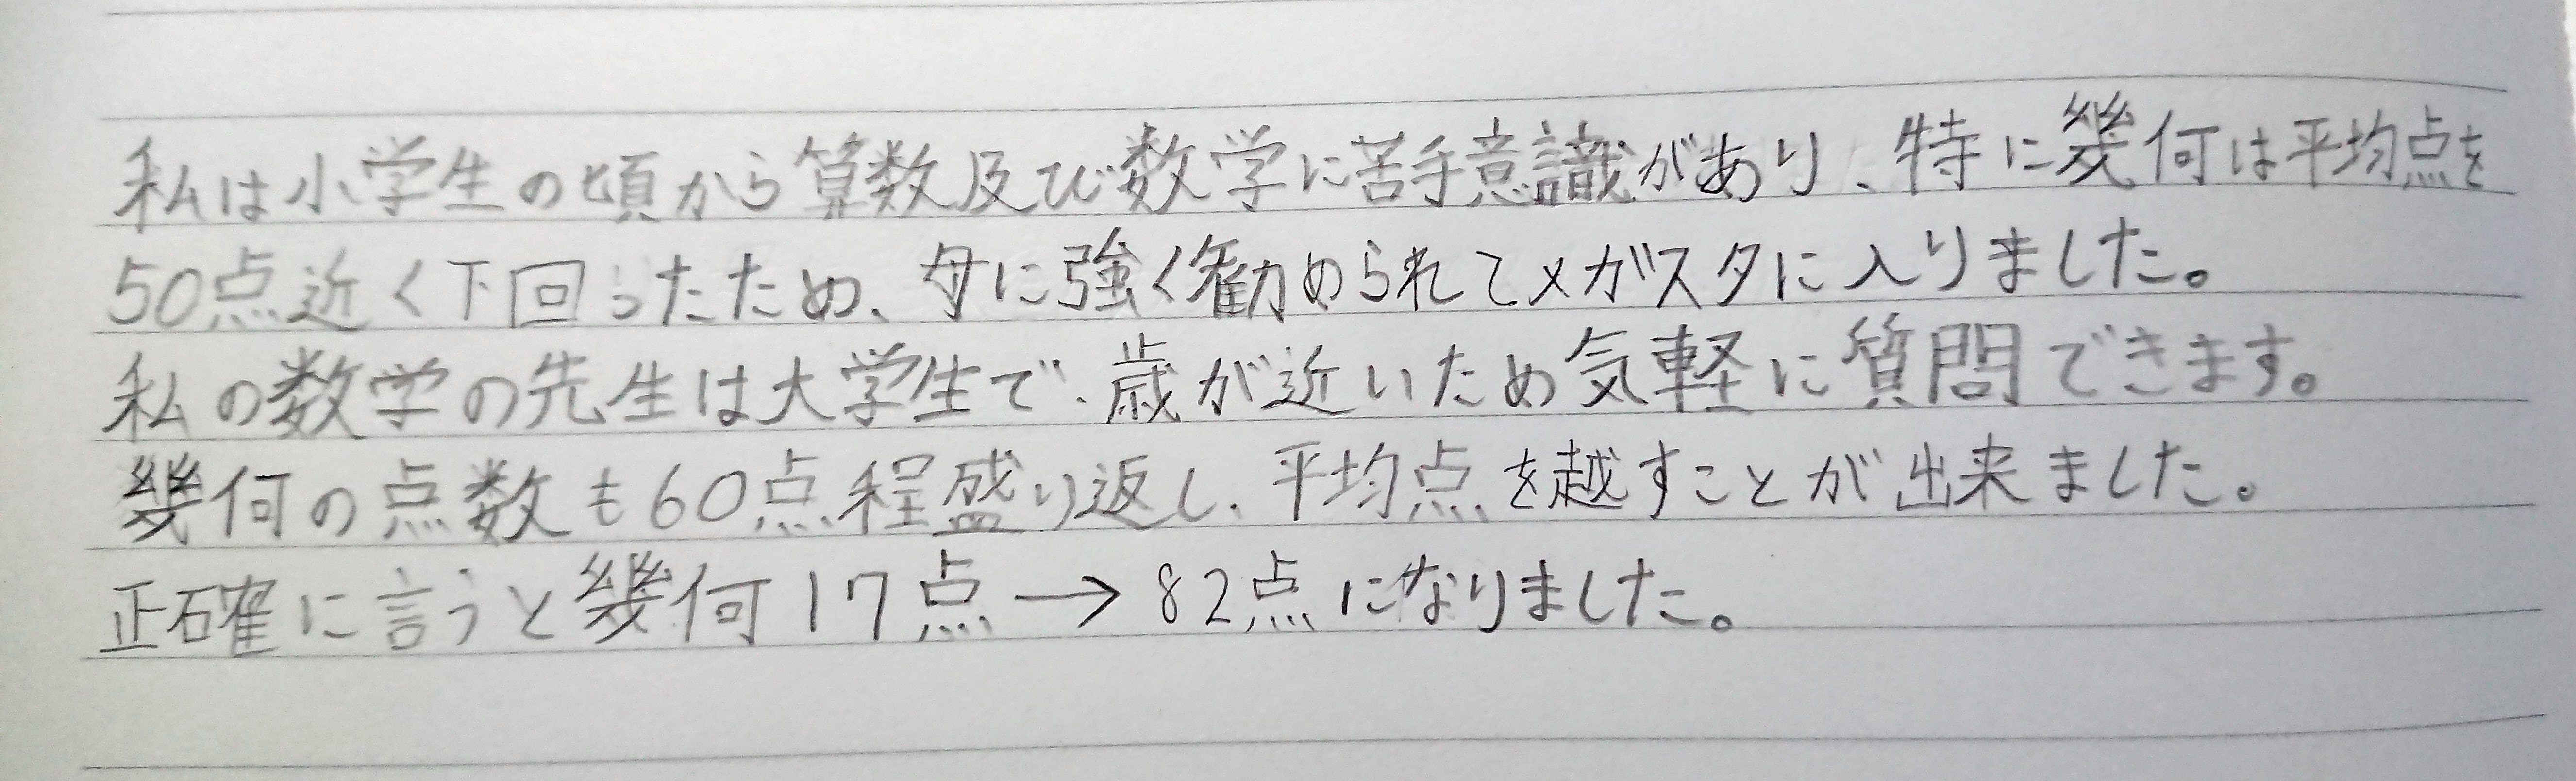 私は小学生の頃から算数及び数学に苦手意識があり、特に幾何は平均点を
50点近く下回ったため、母に強く勧められてメガスタに入りました。
私の数学の先生は大学生で、歳が近いため気軽に質問できます。
幾何の点数も60点程盛り返し、平均点を越すことが出来ました。
正確に言うと幾何17点→82点になりました。